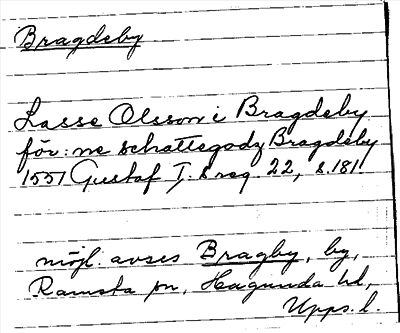 Bragdeby
Lasse Olsson i Bragdeby
för: ne schattegodz Bragdeby
1551 Gustaf I:s reg. 22, s. 181
möjl. avses Bragby, by,
Ramsta sn, Hagunda hd,
Upps. l.